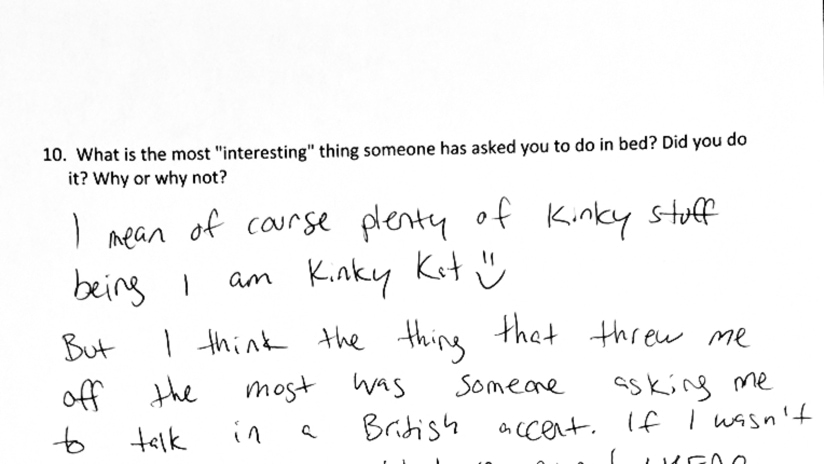 10. What is the most "interesting" thing someone has asked you to do in bed? Did you do
it? Why or why not?
I mean of course plenty of Kinky stuff
being I am Kinky Kat
But I think the thing that threw me
off the most was someone asking me
to talk in a British accent. If I wasn't